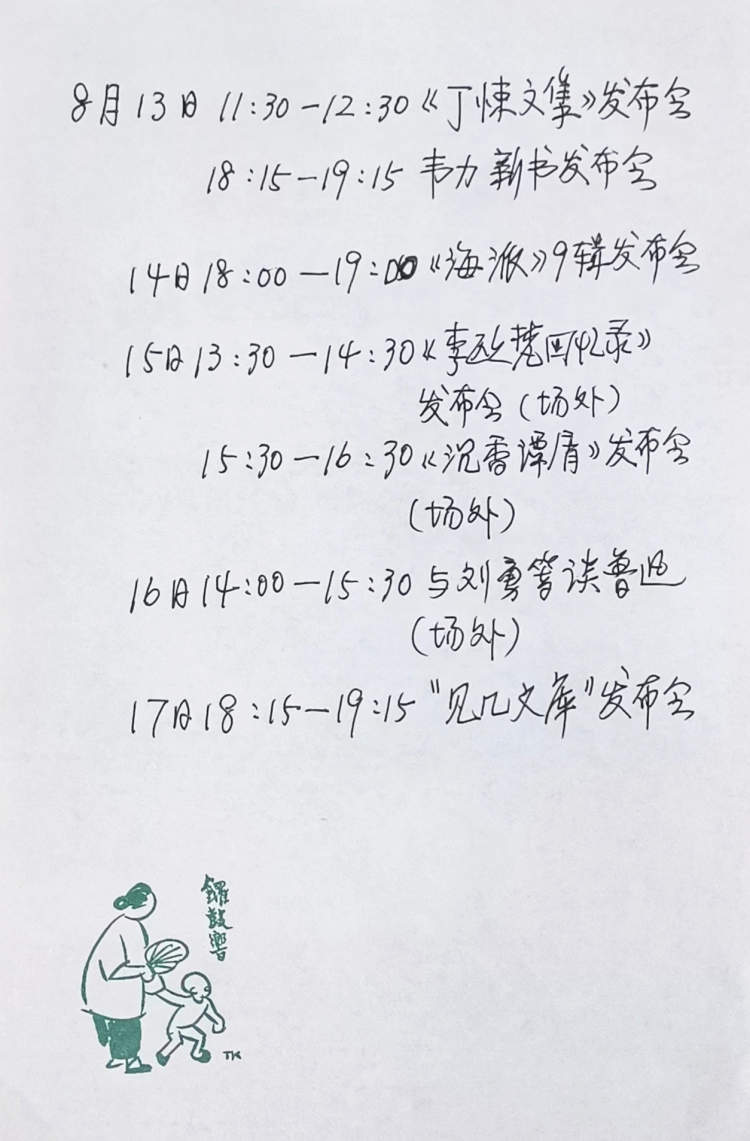 8月13日 11:30—12:30《丁悚文集》发布会
18:15—19:15 韦力新书发布会
14日18:00—19:00《海派》9辑发布会
15日13:30—14:30《李欧梵回忆录》
发布会(场外)
15:30—16:30《沉香谭屑》发布会
(场外)
16日14:00—15:30与刘勇等谈鲁迅
(场外)
17日18:15—19:15“见几文库”发布会
鑼鼓響
TK